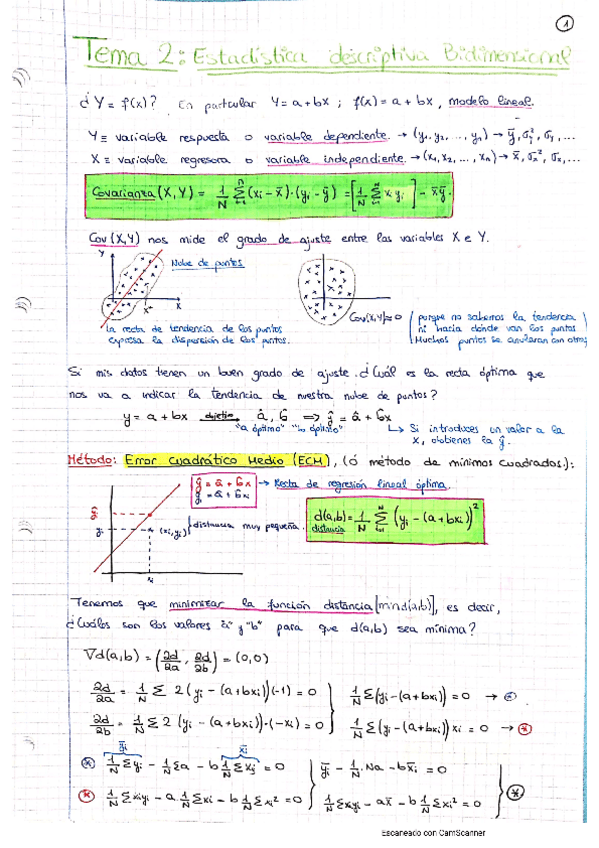 1
Tema 2: Estadística descriptiva Bidimensional
¿Y = f(x)? En particular Y = a + bx ; f(x) = a + bx, modelo lineal.
Y ≡ variable respuesta o variable dependiente. → (y₁, y₂, ..., yₙ) → ȳ, σ²y, σy, ...
X ≡ variable regresora o variable independiente. → (x₁, x₂, ..., xₙ) → x̄, σx², σx, ...
Covarianza (X, Y) = 1/N Σ (xi - x̄)·(yi - ȳ) = [1/N Σ xi yi] - x̄ȳ.
Cov (X,Y) nos mide el grado de ajuste entre las variables X e Y.
Y
Nube de puntos
X
La recta de tendencia de los puntos
expresa la dispersión de los puntos.
Cov(X,Y) ≈ 0
porque no sabemos la tendencia
ni hacia dónde van los puntos
Muchos puntos se anularan con otros
Si mis datos tienen un buen grado de ajuste. ¿Cuál es la recta óptima que
nos va a indicar la tendencia de nuestra nube de puntos?
y = a + bx objetivo → â, b̂ ⇒ ŷ = â + b̂x
"a óptimo" "b óptimo"
↳ Si introduces un valor a la
x, obtienes la ŷ.
Método: Error Cuadrático Medio (ECM), (ó método de mínimos cuadrados.):
ŷ = â + b̂x
ŷi = â + b̂xi
→ Recta de regresión lineal óptima.
ŷi
yi
(xi, yi)
distancia muy pequeña.
xi
d(a,b) = 1/N Σ (yi - (a + bxi))²
distancia
Tenemos que minimizar la función distancia [min d(a,b)], es decir,
¿Cuáles son los valores "a" y "b" para que d(a,b) sea mínima?
∇d(a,b) = (∂d/∂a, ∂d/∂b) = (0,0)
∂d/∂a = 1/N Σ 2(yi - (a + bxi))(-1) = 0
1/N Σ(yi - (a + bxi)) = 0 → *
∂d/∂b = 1/N Σ 2 (yi - (a + bxi))·(-xi) = 0
1/N Σ (yi - (a + bxi)) xi = 0 → *
ȳi x̄i
* 1/N Σyi - 1/N Σa - b 1/N Σxi = 0
ȳi - 1/N · Na - bx̄i = 0
* 1/N Σxiyi - a · 1/N Σxi - b 1/N Σxi² = 0
1/N Σxiyi - ax̄ - b 1/N Σxi² = 0
*
Escaneado con CamScanner